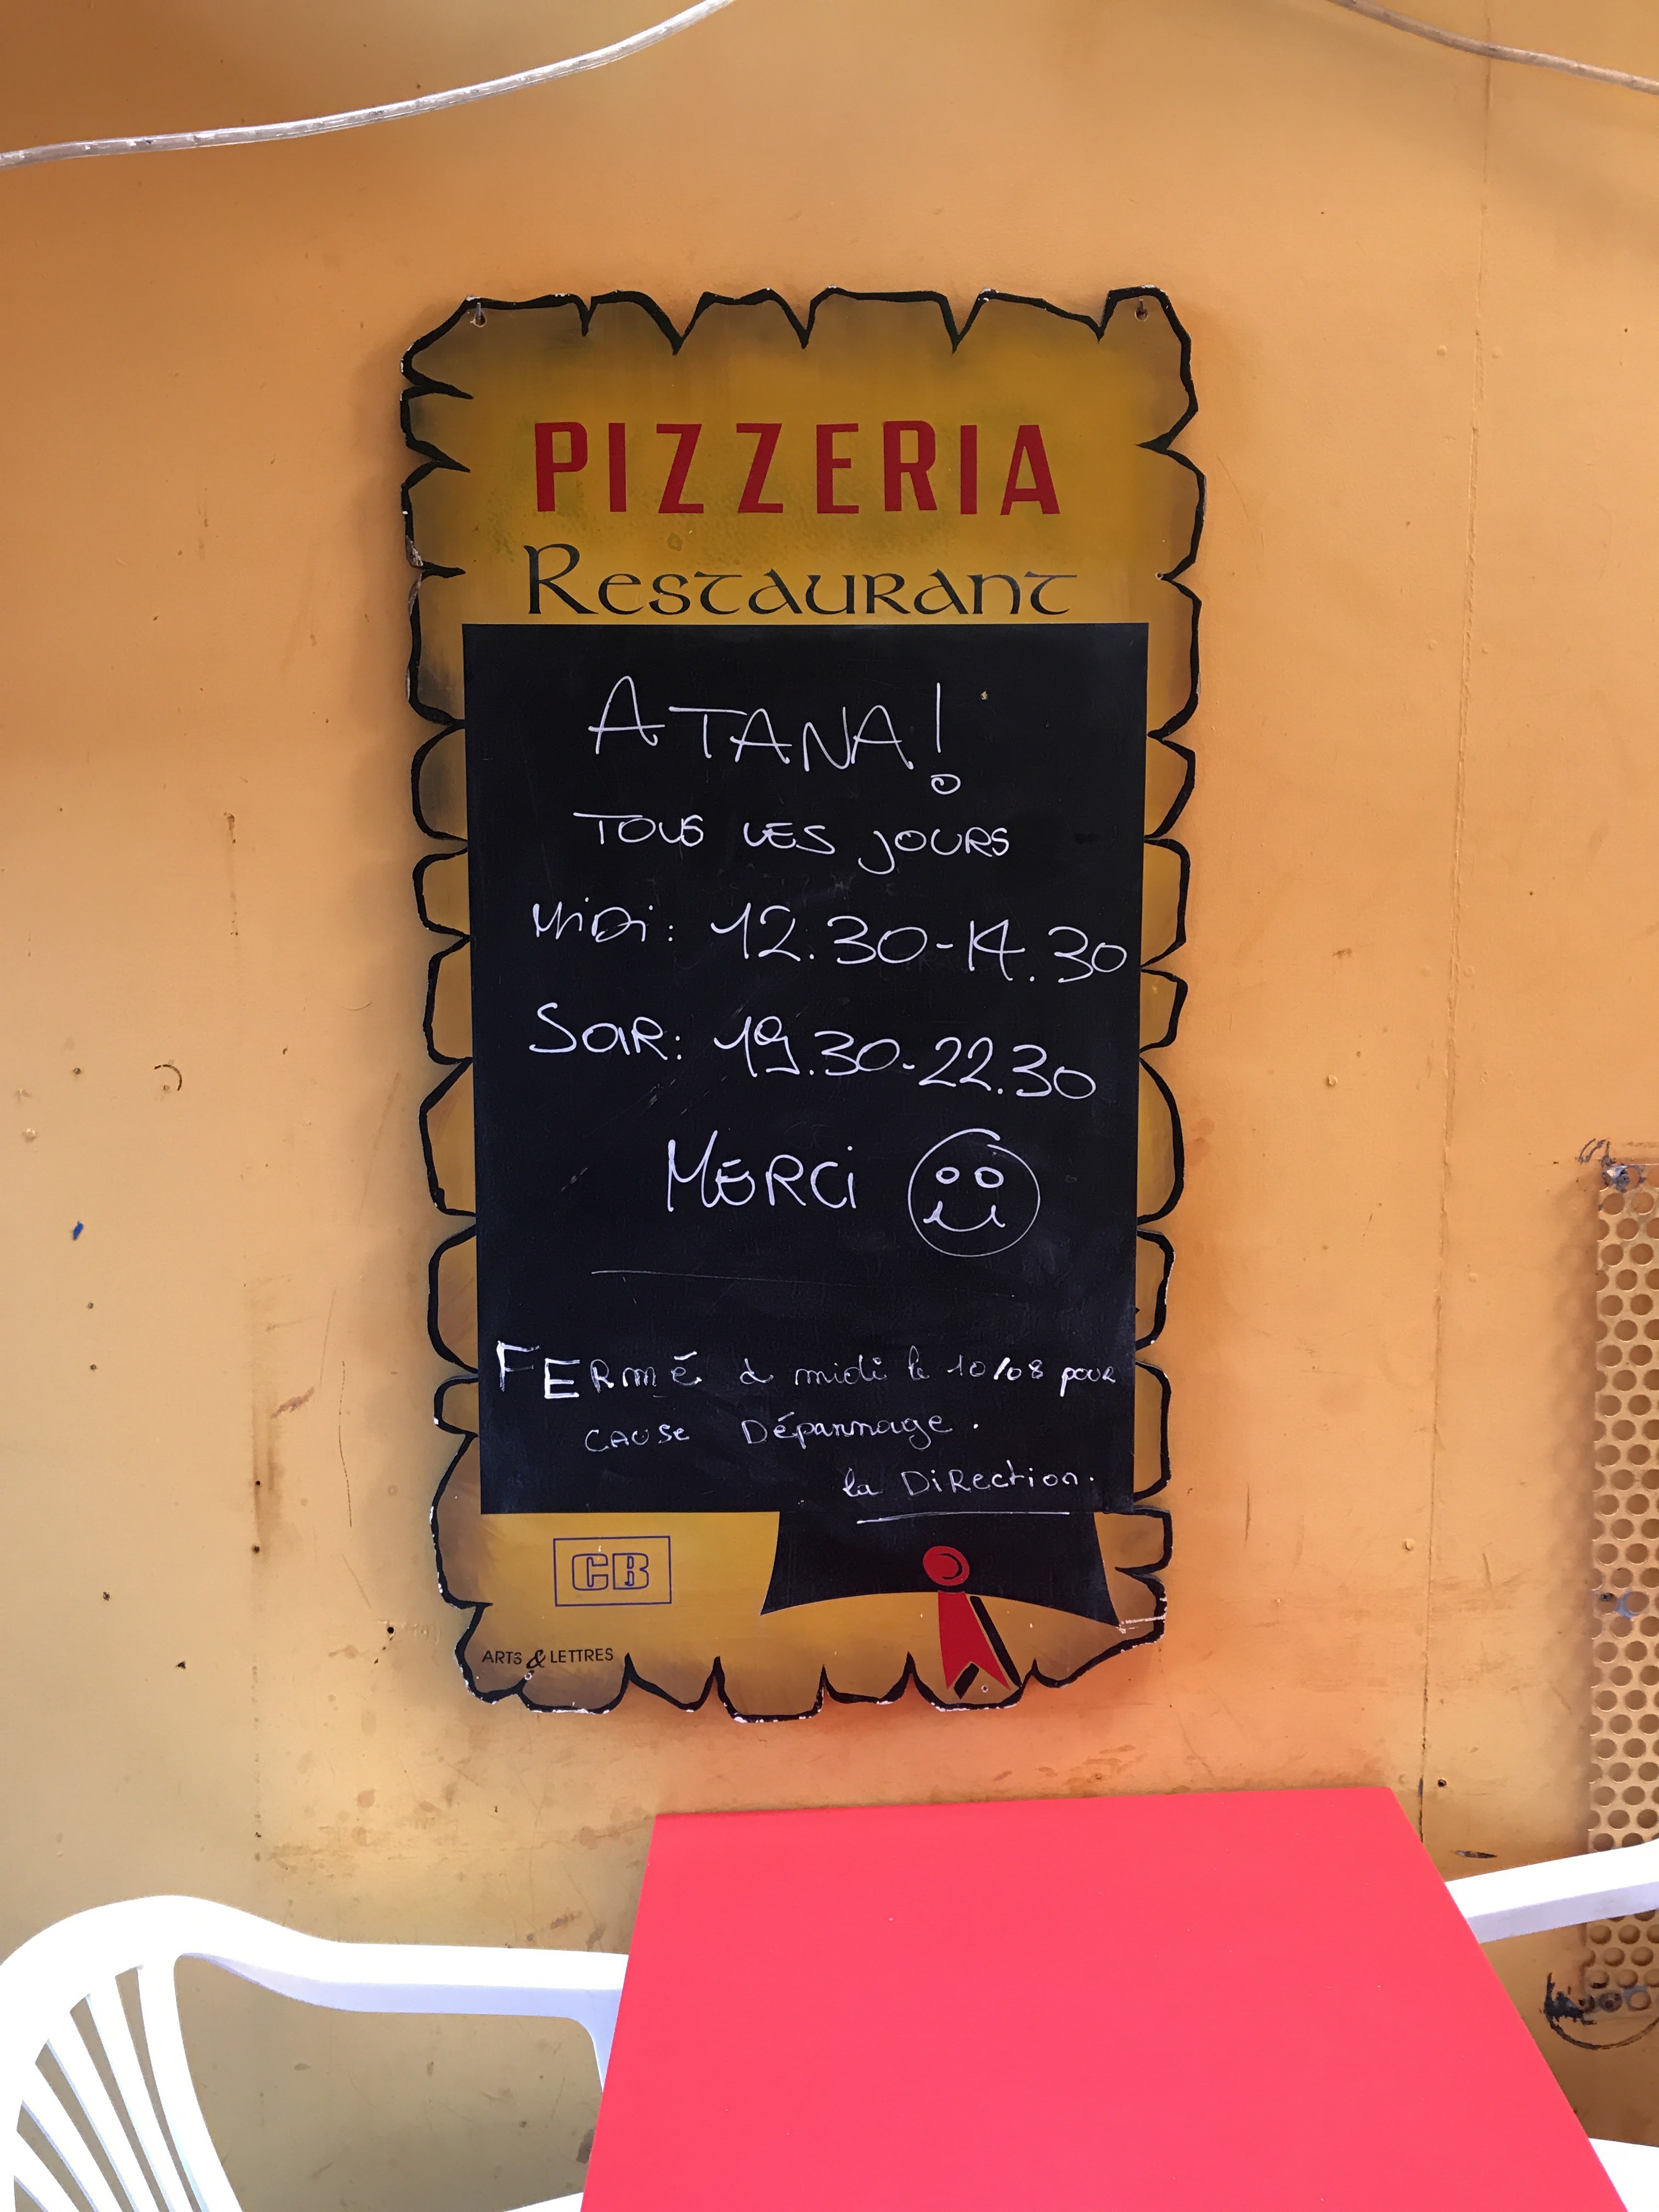 PIZZERIA
Restaurant
ATANA!
TOUS LES JOURS
MiDi: 12.30-14.30
SOIR: 19.30-22.30
MERCi
FERmé à midi le 10/08 pour
CAUSE Dépannage.
la DiRection.
CB
ARTS & LETTRES